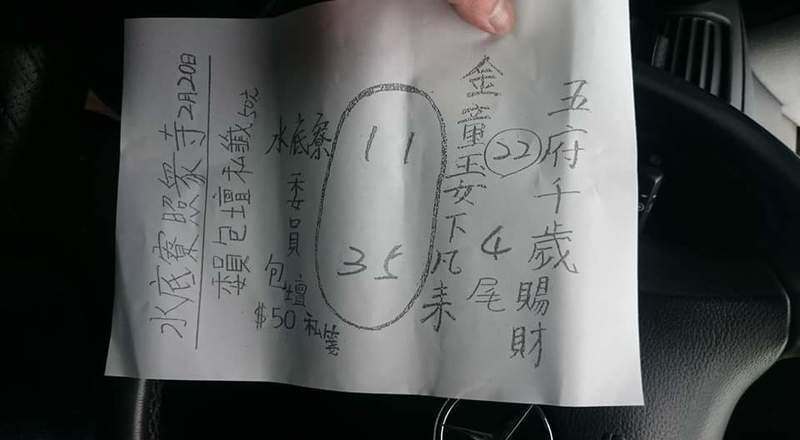 五府千歲賜財
22 4尾
金童玉女下凡來
11 35
水底寮委員包壇$50私簽
委員包壇私籤50元
水底寮照眾寺2月20日